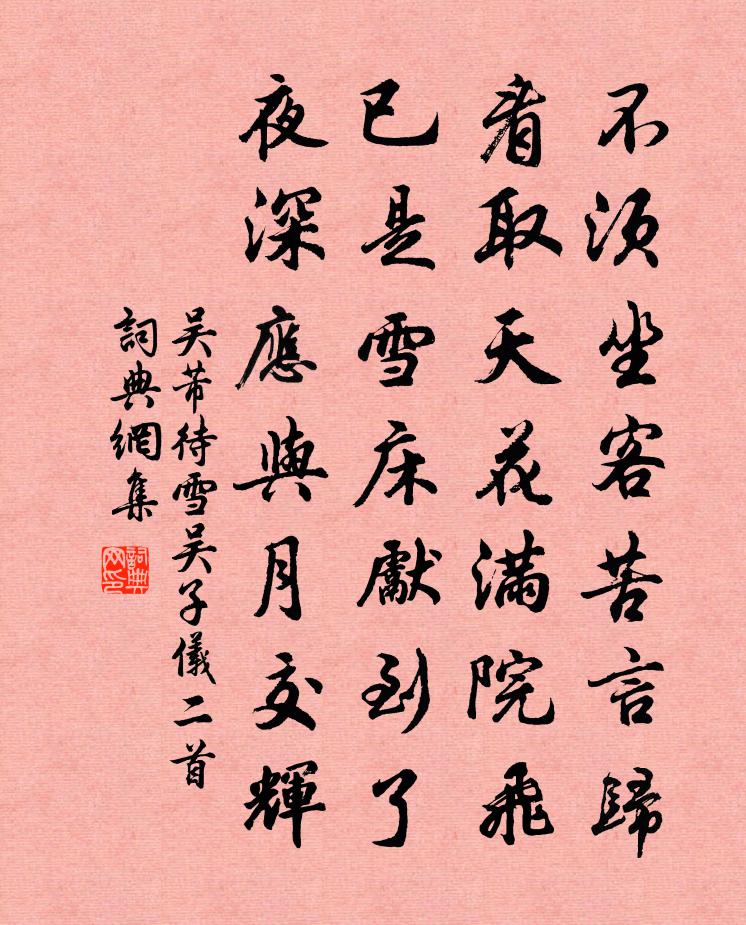 不須坐客苦言歸
看取天花滿院飛
已是雪床獻到了
夜深應與月交輝
吳芾待雪吳子儀二首
詞典網集
詞典網印